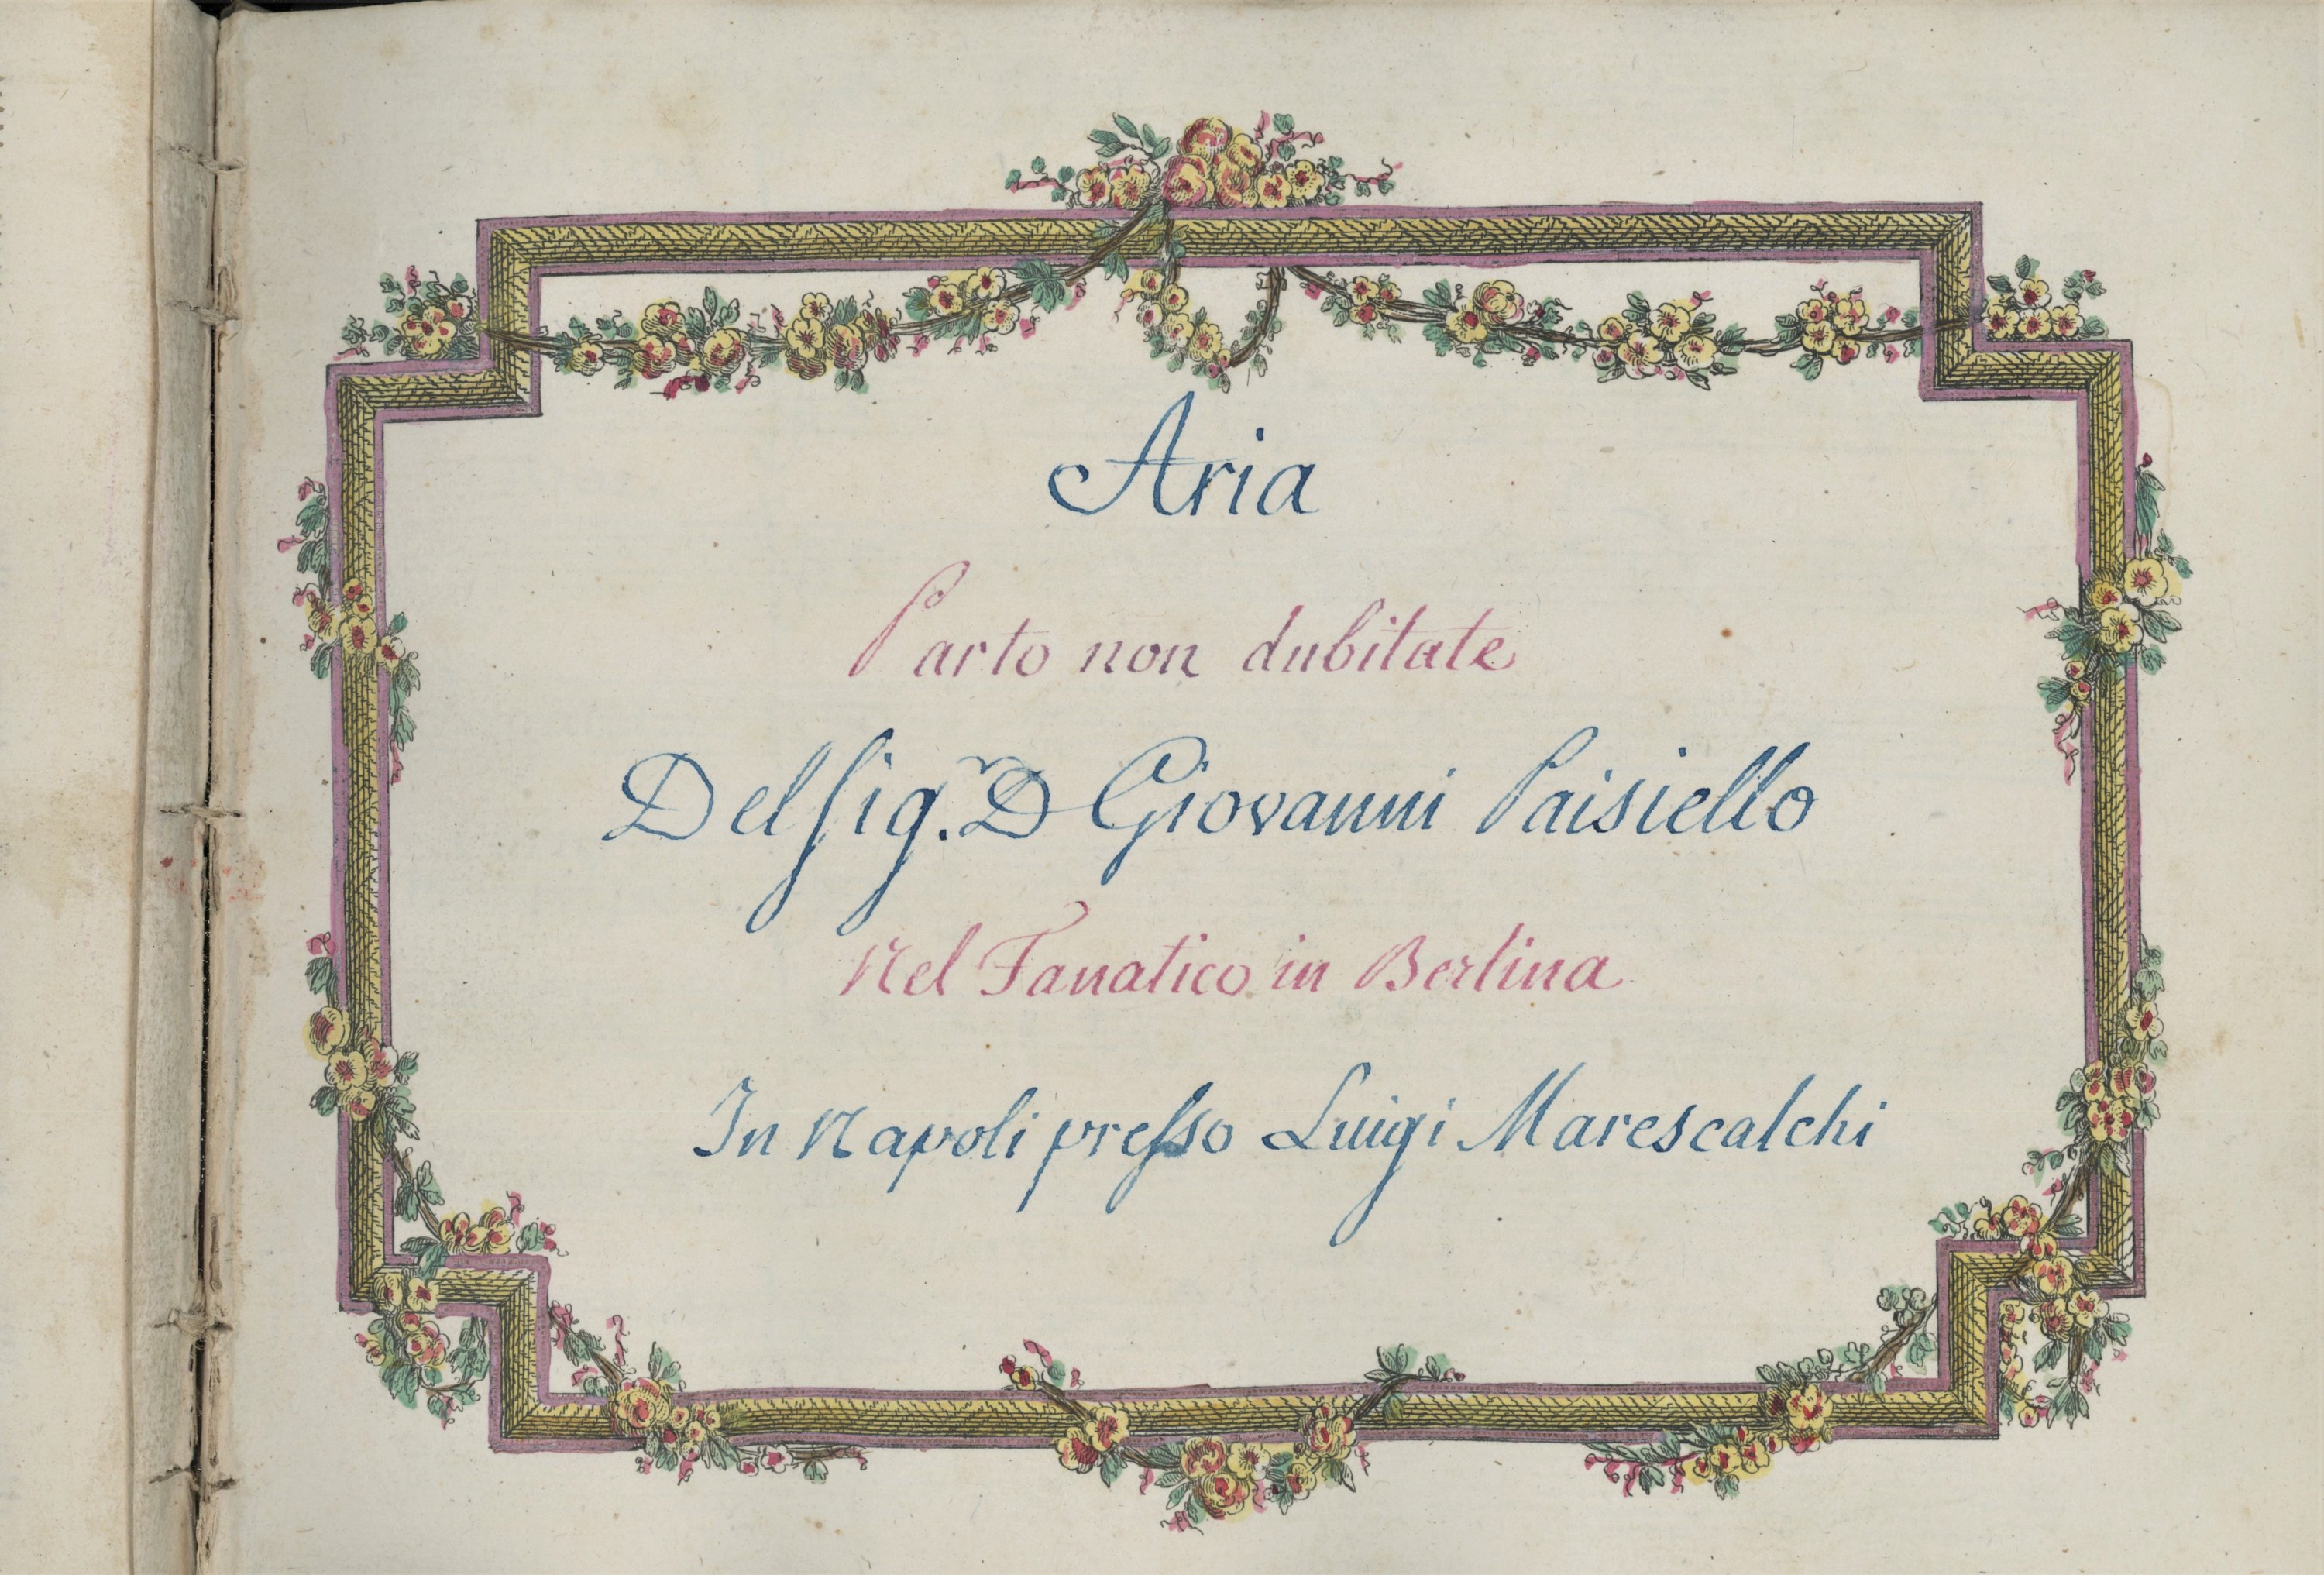 Aria
Parto non dubitate
Del Sig.r D Giovanni Paisiello
Nel Fanatico in Berlina
In Napoli presso Luigi Marescalchi